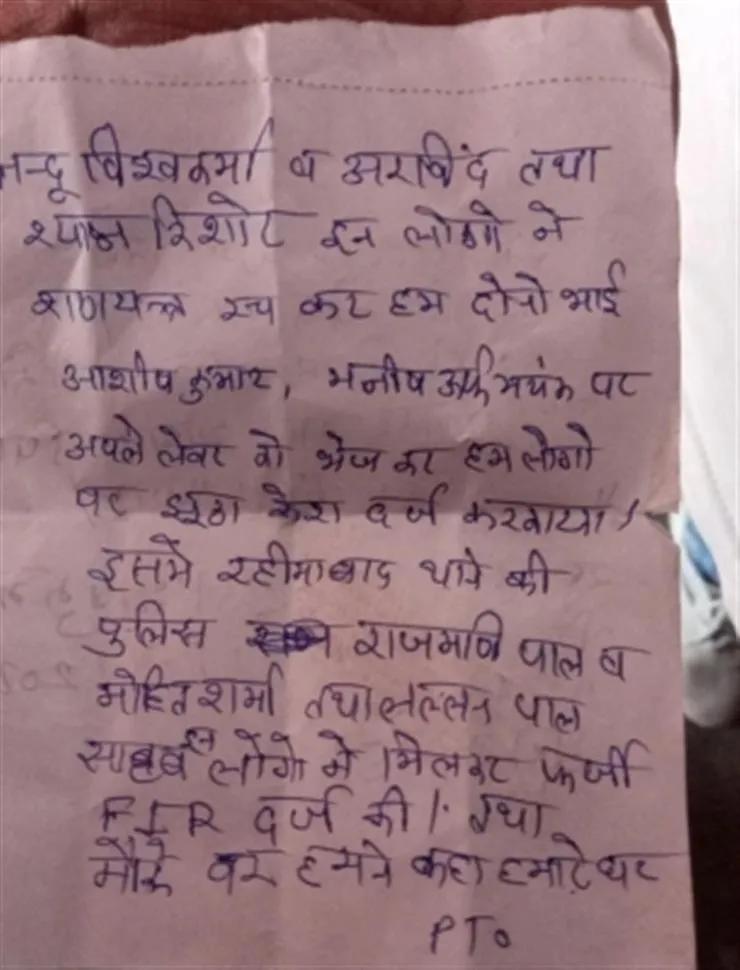 नन्दू विश्वकर्मा व अरविंद तथा
श्याम किशोर इन लोगो ने
रच कर हम दोनो भाई
आशीष कुमार, मनीष उर्फ मयंक पर
अपने लेबर को भेज कर हम लोगो
पर झूठा केस दर्ज करवाया।
इसमे रहीमाबाद थाने की
पुलिस राजमणि पाल व
मोहित शर्मा तथा लल्लन पाल
इन लोगो ने मिलकर फर्जी
FIR दर्ज की। तथा
मौके पर हमने कहा हमारे घर
PTO